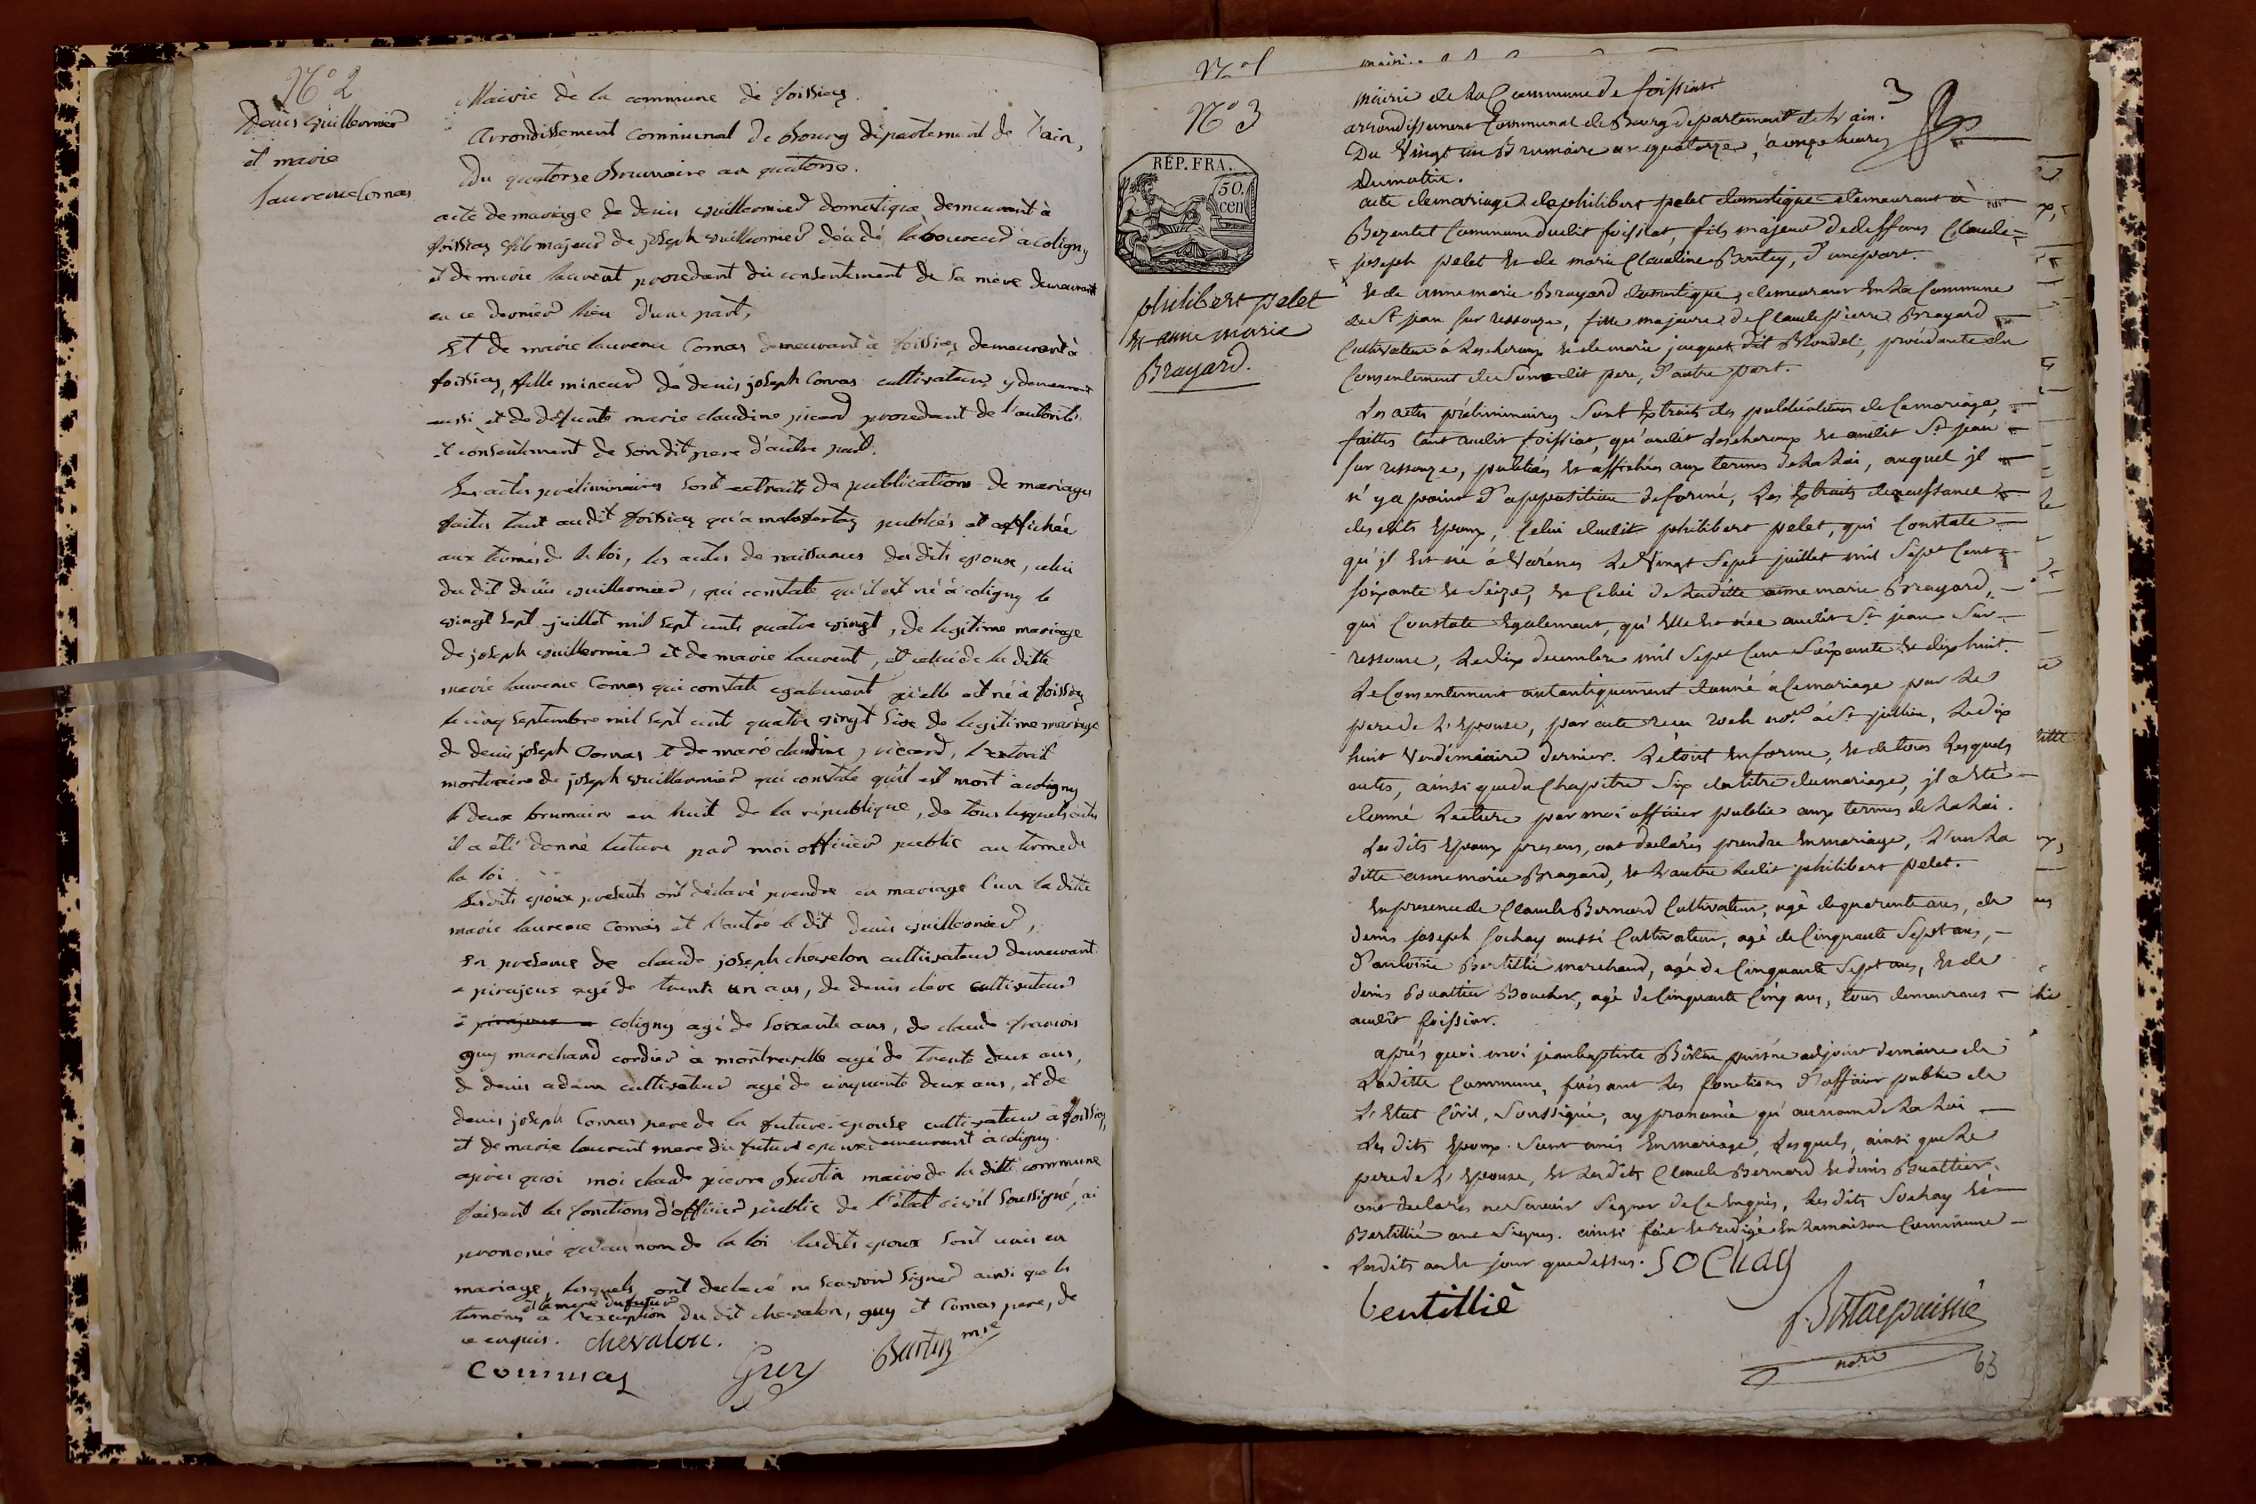 N° 2
Denis Vuillermier
et marie
laurence Comas
Mairie de la commune de foissiaz.
Arrondissement communal de Bourg département de l'ain,
du quatorse Brumaire an quatorse.
acte de mariage de denis vuillermier domestique demeurant à
foissiaz fils majeur de joseph vuillermier décédé laboureur à coligny
et de marie laurent procedant du consentement de sa mere demeurant
en ce dernier lieu d'une part,
Et de marie laurence Comas demeurant à foissiaz demeurant à
foissiaz, fille mineur de denis joseph Comas cultivateur y demeurant
aussi et de defunte marie claudine picard procedant de l'autorité
et consentement de son dit pere d'autre part.
Les actes préliminaires sont extraits des publications de mariages
faites tant audit foissiaz qu'a publiés et affichée
aux termes de la loi, les actes de naissances des dits epoux, celui
du dit denis vuillermier, qui constate qu'il est né à coligny le
vingt sept juillet mil sept cents quatre vingt, de legitime mariage
de joseph vuillermier et de marie laurent, et celui de la ditte
marie laurence Comas qui constate egalement qu'elle est né à foissiaz
le cinq septembre mil sept cents quatre vingt six de legitime mariage
de denis joseph Comas et de marie claudine picard, l'extrait
mortuaire de joseph vuillermier qui constate qu'il est mort à coligny
le deux brumaire an huit de la république, de tous lesquels actes
il a été donné lecture par moi officier public au terme de
la loi.
Lesdits epoux presents ont déclaré prendre en mariage l'un la ditte
marie laurence Comas et l'autre le dit denis vuillermier,
En presence de claude joseph chevalon cultivateur demeurant
a pirajoux agé de trente un ans, de denis cultivateur
à pirajoux a coligny agé de soixante ans, de claude francois
guy marchand cordier à montrevelle agé de trente deux ans,
de denis adam cultivateur agé de cinquante deux ans, et de
denis joseph Comas pere de la future epouse cultivateur à foissiaz,
et de marie laurent mere du futur epoux demeurant à coligny.
après quoi moi claude pierre Burtin maire de la ditte commune
faisant les fonctions d'officier public de l'état civil soussigné, ai
prononcé qu'au nom de la loi lesdits epoux sont unis en
mariage, lesquels ont declaré ne scavoir signer ainsi que les
et la mere du futur
temoins a l'exception du dit chevalon, guy et Comas pere, de
ce enquis. chevalon.
Commas Guy Burtin mre
N° 3
RÉP. FRA.
50.
cen
philibert pelet
et anne marie
Brayard.
3
Mairie de la Commune de foissiat
arrondissement Communal de Bourg département de l'ain.
Du Vingt un Brumaire an quatorze, à onze heures
du matin.
acte de mariage de philibert pelet domestique demeurant à
Bezentet Commune dudit foissiat, fils majeur de deffunts Claude
joseph pelet et de marie Claudine Bontey, d'une part.
et de anne marie Brayard domestique, demeurant en la Commune
de St jean sur ressouze, fille majeure de Claude pierre Brayard
Cultivateur à Lescheroux et de marie jacquet dit Blondel, procédante du
Consentement de son dit pere, d'autre part.
Les actes préliminaires sont Extraits des publications de Ce mariage,
faittes tant audit foissiat, qu'audit Lescheroux et audit St jean
sur ressouze, publiées et affichées aux termes de la Loi, auquel il
n'y a point d'apposition de formé, Les Extraits de naissance
des dits Epoux, Celui dudit philibert pelet, qui Constate
qu'il est né à Varênes Le Vingt Sept juillet mil Sept Cent
soixante et Seize, et Celui de Laditte anne marie Brayard,
qui Constate Egalement, qu'elle est née audit St jean Sur
ressouse, Le dix decembre mil Sept Cent Soixante et dix huit.
Le Consentement autantiquement donné à Ce mariage par Le
pere de L'epouse, par acte recu not. à St jullien, Le dix
huit Vendémiaire dernier. Le tout en forme, et de tous Lesquels
actes, ainsi que du Chapitre Six du titre du mariage, il a Eté
donné Lecture par moi officier public aux termes de La Loi.
Les dits Epoux presens, ont declarés prendre en mariage, L'un La
ditte anne marie Brayard, et L'autre Ledit philibert pelet.
En presence de Claude Bernard Cultivateur, agé de quarente ans, de
denis joseph Sochay aussi Cultivateur, agé de Cinquante Sept ans,
d'antoine Bertillié marchand, agé de Cinquante Sept ans, et de
denis Buattier Boucher, agé de Cinquante Cinq ans, tous demeurans
audit foissiat.
après quoi moi jean baptiste puisné adjoint du maire de
Laditte Commune, faisant Les fonctions d'officier public de
L'etat Civil, Soussigné, ay prononcé qu'au nom de La Loi
Les dits Epoux sont unis En mariage, Lesquels, ainsi que Le
pere de L'epouse, et Les dits Claude Bernard et denis Buattier
ont declarés ne Savoir Signer de Ce Enquis, Les dits Sochay et
Bertillié ont Signes. ainsi fait et redigé en La maison Commune
Lesdits an et jour que dessus. SOChay
bentilliè
63